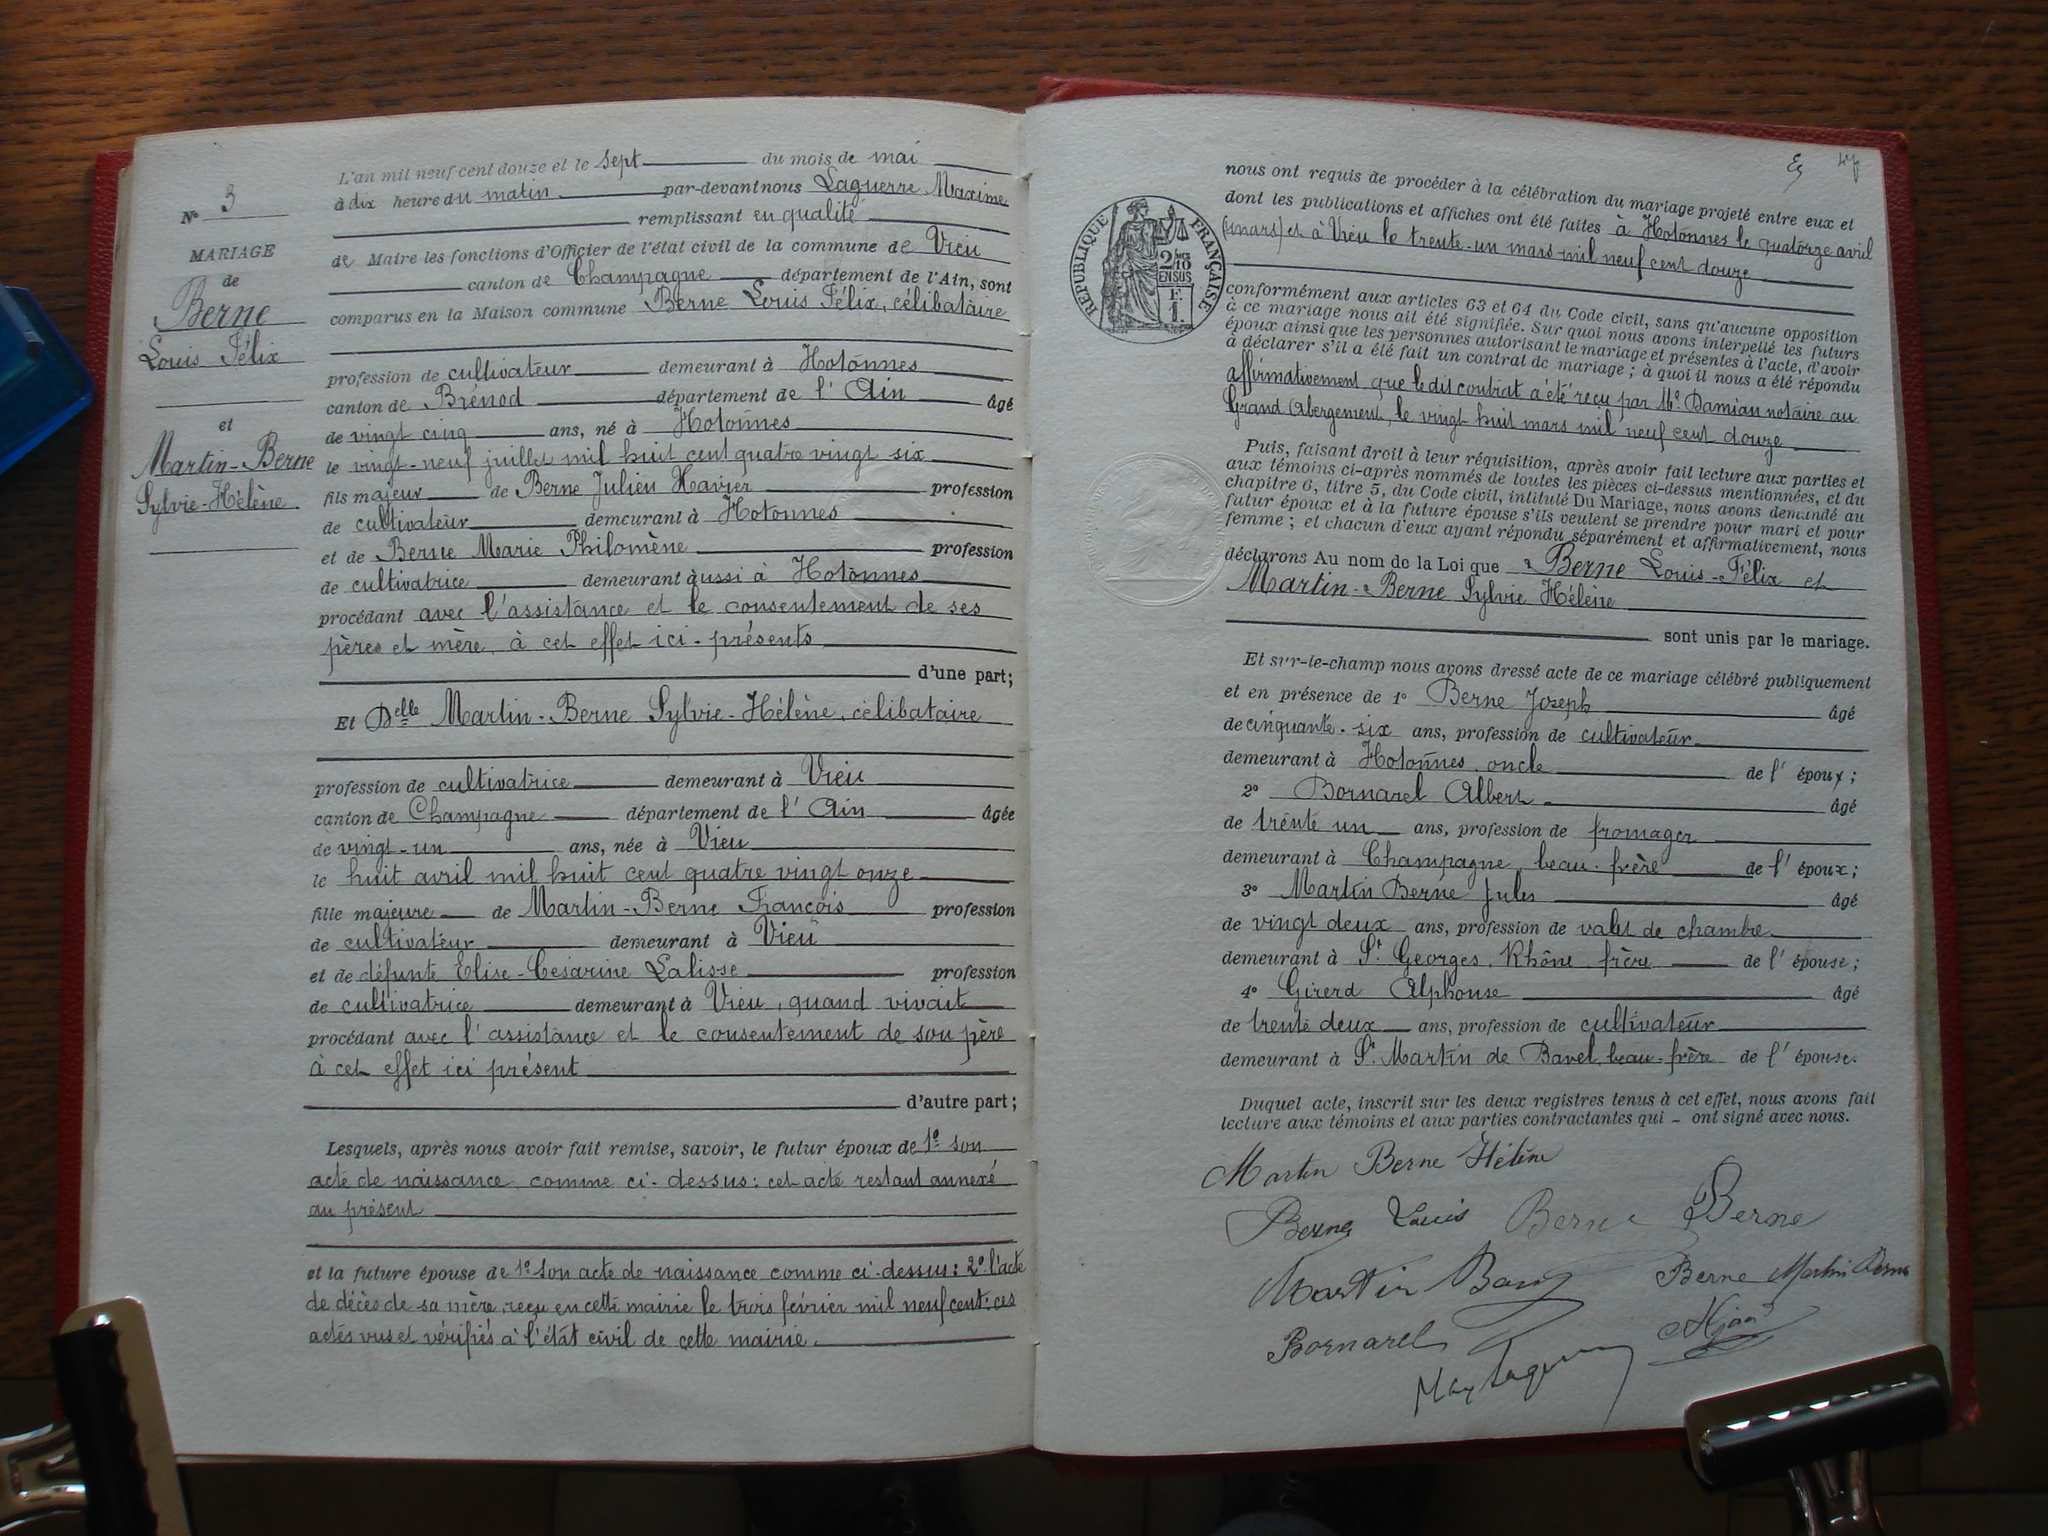 N° 3
MARIAGE
de
Berne
Louis Félix
et
Martin-Berne
Sylvie-Hélène
L'an mil neuf cent douze et le sept du mois de mai
à dix heure du matin par-devant nous Laguerre Maxime
remplissant en qualité
de Maire les fonctions d'Officier de l'état civil de la commune de Vieu
canton de Champagne département de l'Ain, sont
comparus en la Maison commune Berne Louis Félix, célibataire
profession de cultivateur demeurant à Hotonnes
canton de Brénod département de l'Ain âgé
de vingt cinq ans, né à Hotonnes
le vingt-neuf juillet mil huit cent quatre vingt six
fils majeur de Berne Julien Xavier profession
de cultivateur demeurant à Hotonnes
et de Berne Marie Philomène profession
de cultivatrice demeurant aussi à Hotonnes
procédant avec l'assistance et le consentement de ses
pères et mère, à cet effet ici-présents
d'une part;
Et Delle Martin-Berne Sylvie-Hélène, célibataire
profession de cultivatrice demeurant à Vieu
canton de Champagne département de l'Ain âgée
de vingt-un ans, née à Vieu
le huit avril mil huit cent quatre vingt onze
fille majeure de Martin-Berne François profession
de cultivateur demeurant à Vieu
et de défunte Elise-Césarine Lalisse profession
de cultivatrice demeurant à Vieu, quand vivait
procédant avec l'assistance et le consentement de son père
à cet effet ici présent
d'autre part;
Lesquels, après nous avoir fait remise, savoir, le futur époux de 1° son
acte de naissance comme ci-dessus: cet acte restant annexé
au présent
et la future épouse de 1° son acte de naissance comme ci-dessus: 2° l'acte
de décès de sa mère, reçu en cette mairie le trois février mil neuf cent: ces
actes vus et vérifiés à l'état civil de cette mairie.
47
RÉPUBLIQUE FRANÇAISE
2/10
EN SUS
F.
1.
nous ont requis de procéder à la célébration du mariage projeté entre eux et
dont les publications et affiches ont été faites à Hotonnes le quatorze avril
(mars) et à Vieu le trente-un mars mil neuf cent douze
conformément aux articles 63 et 64 du Code civil, sans qu'aucune opposition
à ce mariage nous ait été signifiée. Sur quoi nous avons interpellé les futurs
époux ainsi que les personnes autorisant le mariage et présentes à l'acte, d'avoir
à déclarer s'il a été fait un contrat de mariage; à quoi il nous a été répondu
affirmativement que le dit contrat a été reçu par Me Damian notaire au
Grand Abergement, le vingt huit mars mil neuf cent douze
Puis, faisant droit à leur réquisition, après avoir fait lecture aux parties et
aux témoins ci-après nommés de toutes les pièces ci-dessus mentionnées, et du
chapitre 6, titre 5, du Code civil, intitulé Du Mariage, nous avons demandé au
futur époux et à la future épouse s'ils veulent se prendre pour mari et pour
femme; et chacun d'eux ayant répondu séparément et affirmativement, nous
déclarons Au nom de la Loi que Berne Louis-Félix et
Martin-Berne Sylvie Hélène
sont unis par le mariage.
Et sur-le-champ nous avons dressé acte de ce mariage célébré publiquement
et en présence de 1° Berne Joseph âgé
de cinquante-six ans, profession de cultivateur
demeurant à Hotonnes, oncle de l'époux;
2° Bornarel Albert âgé
de trente un ans, profession de fromager
demeurant à Champagne, beau-frère de l'époux;
3° Martin Berne Jules âgé
de vingt deux ans, profession de valet de chambre
demeurant à St Georges, Rhône, frère de l'épouse;
4° Girerd Alphonse âgé
de trente deux ans, profession de cultivateur
demeurant à St Martin de Bavel, beau-frère de l'épouse.
Duquel acte, inscrit sur les deux registres tenus à cet effet, nous avons fait
lecture aux témoins et aux parties contractantes qui - ont signé avec nous.
Martin Berne Hélène
Berne Louis Berne Berne
Martin Berne Martin Berne
Bornarel
Max Laguerre